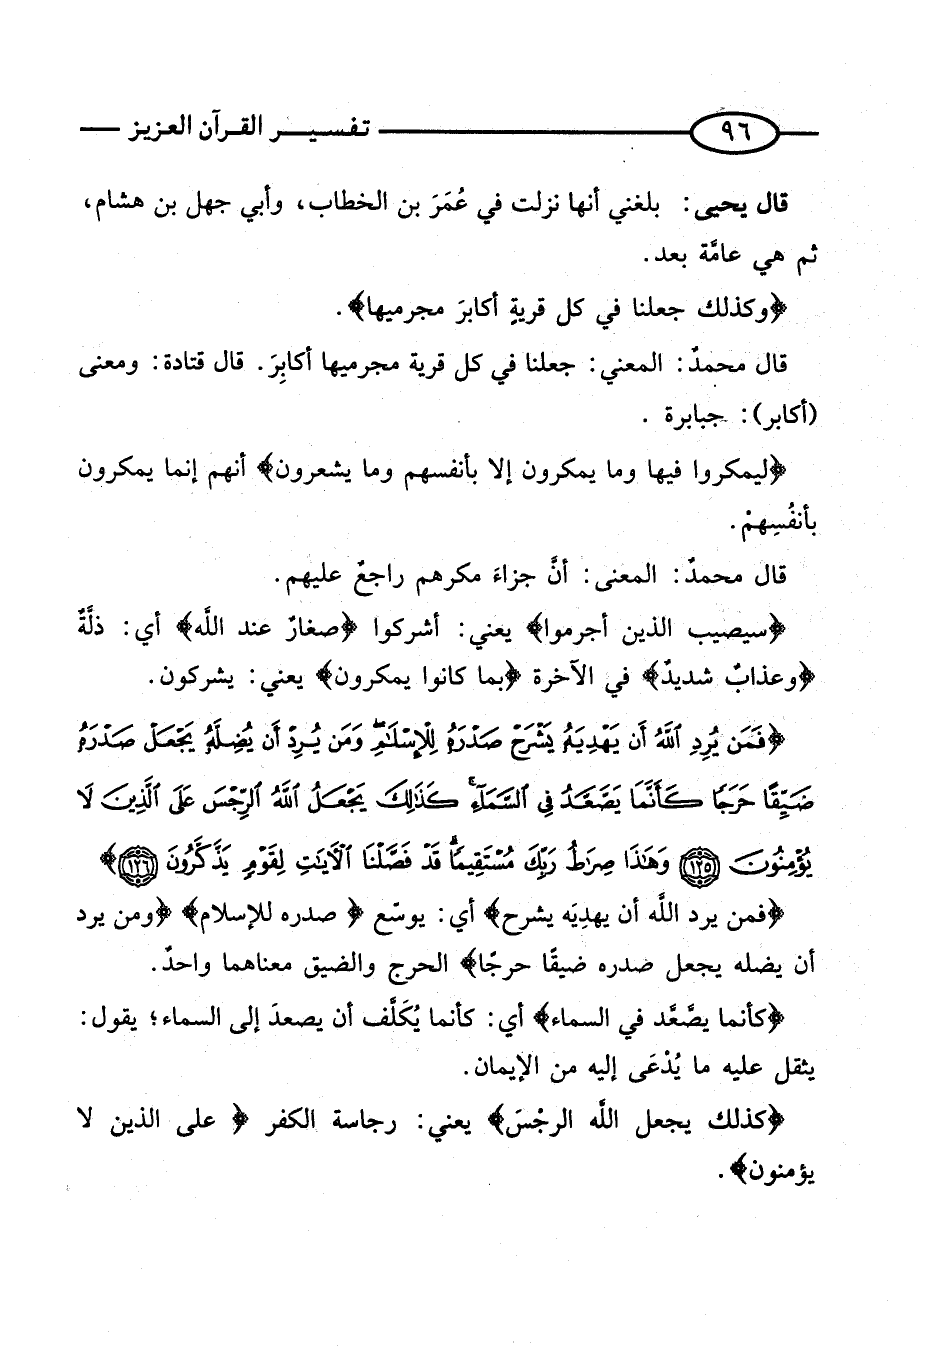 ٩٦ تفسير القرآن العزيز
قال يحيى: بلغني أنها نزلت في عُمَرَ بن الخطاب، وأبي جهل بن هشام،
ثم هي عامَّة بعد.
﴿وكذلك جعلنا في كل قريةٍ أكابرَ مجرميها﴾.
قال محمدٌ: المعني: جعلنا في كل قرية مجرميها أكابِرَ. قال قتادة: ومعنى
(أكابر): جبابرة .
﴿ليمكروا فيها وما يمكرون إلا بأنفسهم وما يشعرون﴾ أنهم إنما يمكرون
بأنفُسِهمْ.
قال محمدٌ: المعنى: أنَّ جزاءَ مكرهم راجعٌ عليهم.
﴿سيصيب الذين أجرموا﴾ يعني: أشركوا ﴿صغارٌ عند اللَّه﴾ أي: ذلَّةٌ
﴿وعذابٌ شديدٌ﴾ في الآخرة ﴿بما كانوا يمكرون﴾ يعني: يشركون.
﴿فَمَن يُرِدِ ٱللَّهُ أَن يَهْدِيَهُۥ يَشْرَحْ صَدْرَهُۥ لِلْإِسْلَٰمِۖ وَمَن يُرِدْ أَن يُضِلَّهُۥ يَجْعَلْ صَدْرَهُۥ
ضَيِّقًا حَرَجًا كَأَنَّمَا يَصَّعَّدُ فِى ٱلسَّمَآءِۚ كَذَٰلِكَ يَجْعَلُ ٱللَّهُ ٱلرِّجْسَ عَلَى ٱلَّذِينَ لَا
يُؤْمِنُونَ ١٢٥ وَهَٰذَا صِرَٰطُ رَبِّكَ مُسْتَقِيمًاۗ قَدْ فَصَّلْنَا ٱلْأَيَٰتِ لِقَوْمٍ يَذَّكَّرُونَ ١٢٦﴾
﴿فمن يرد اللَّه أن يهدِيَه يشرح﴾ أي: يوسّع ﴿ صدره للإسلام﴾ ﴿ومن يرد
أن يضله يجعل صدره ضيقًا حرجًا﴾ الحرج والضيق معناهما واحدٌ.
﴿كأنما يصَّعَّد في السماء﴾ أي: كأنما يُكَلَّف أن يصعدَ إلى السماء؛ يقول:
يثقل عليه ما يُدْعَى إليه من الإيمان.
﴿كذلك يجعل اللَّه الرجْسَ﴾ يعني: رجاسة الكفر ﴿ على الذين لا
يؤمنون﴾.